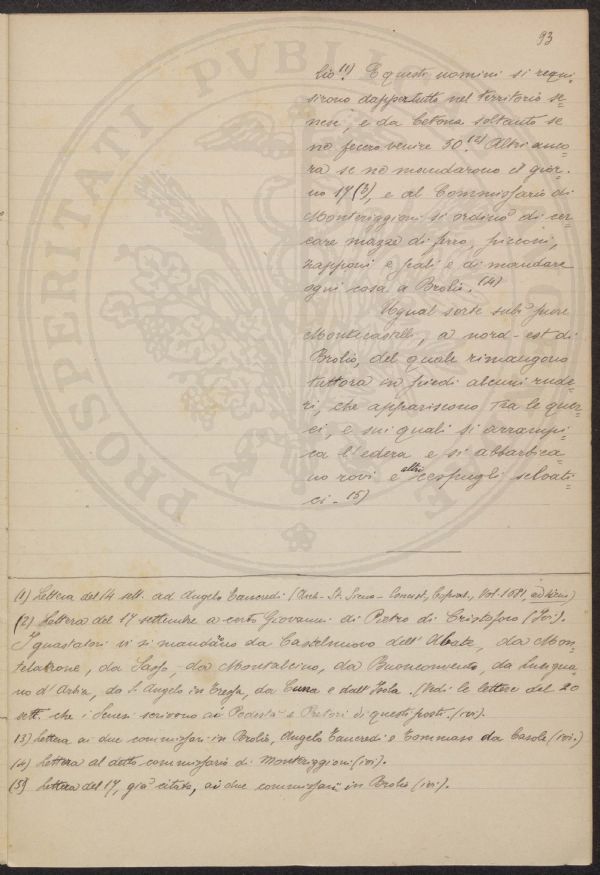 93
lio.(1) E questi uomini si requi=
sirono dappertutto nel territorio se=
nese, e da Cetona soltanto se
ne fecero venire 50.(2) Altri anco=
ra se ne mandarono il gior=
no 17(3), e al Commissario di
Monteriggioni si ordinò di cer=
care mazze di ferro, picconi,
zapponi e pali e di mandare
ogni cosa a Brolio.(4)
Ugual sorte subì pure
Montecastelli, a nord-est di
Brolio, del quale rimangono
tuttora in piedi alcuni rude=
ri, che appariscono tra le quer=
ci, e sui quali si arrampi=
ca l'edera e si abbarbica=
no rovi e altri cespugli selvati=
ci.(5)
(1) Lettera del 14 sett. ad Angelo Tancredi. (Arch. St. Senese - Concist., Vol. 1681, ad diem)
(2) Lettera del 17 settembre a certo Giovanni di Pietro di Cristoforo (Ivi).
I guastatori vi si mandano da Castelnuovo dell'Abate, da Mon=
telatrone, da Sasso, da Montalcino, da Buonconvento, da Lucigna=
no d'Arbia, da S. Angelo in Tressa, da Cuna e dall'Isola. (Vedi le lettere del 20
sett. che i Senesi scrivono ai Podestà e Pretori di questi posti. (ivi).
(3) Lettera ai due commissari in Brolio, Angelo Tancredi e Tommaso da Casole (ivi.)
(4) Lettera al detto commissario di Monteriggioni (ivi).
(5) Lettera del 17, già citata, ai due commissari in Brolio (ivi).
PUBLIC
PIOSTERITATI